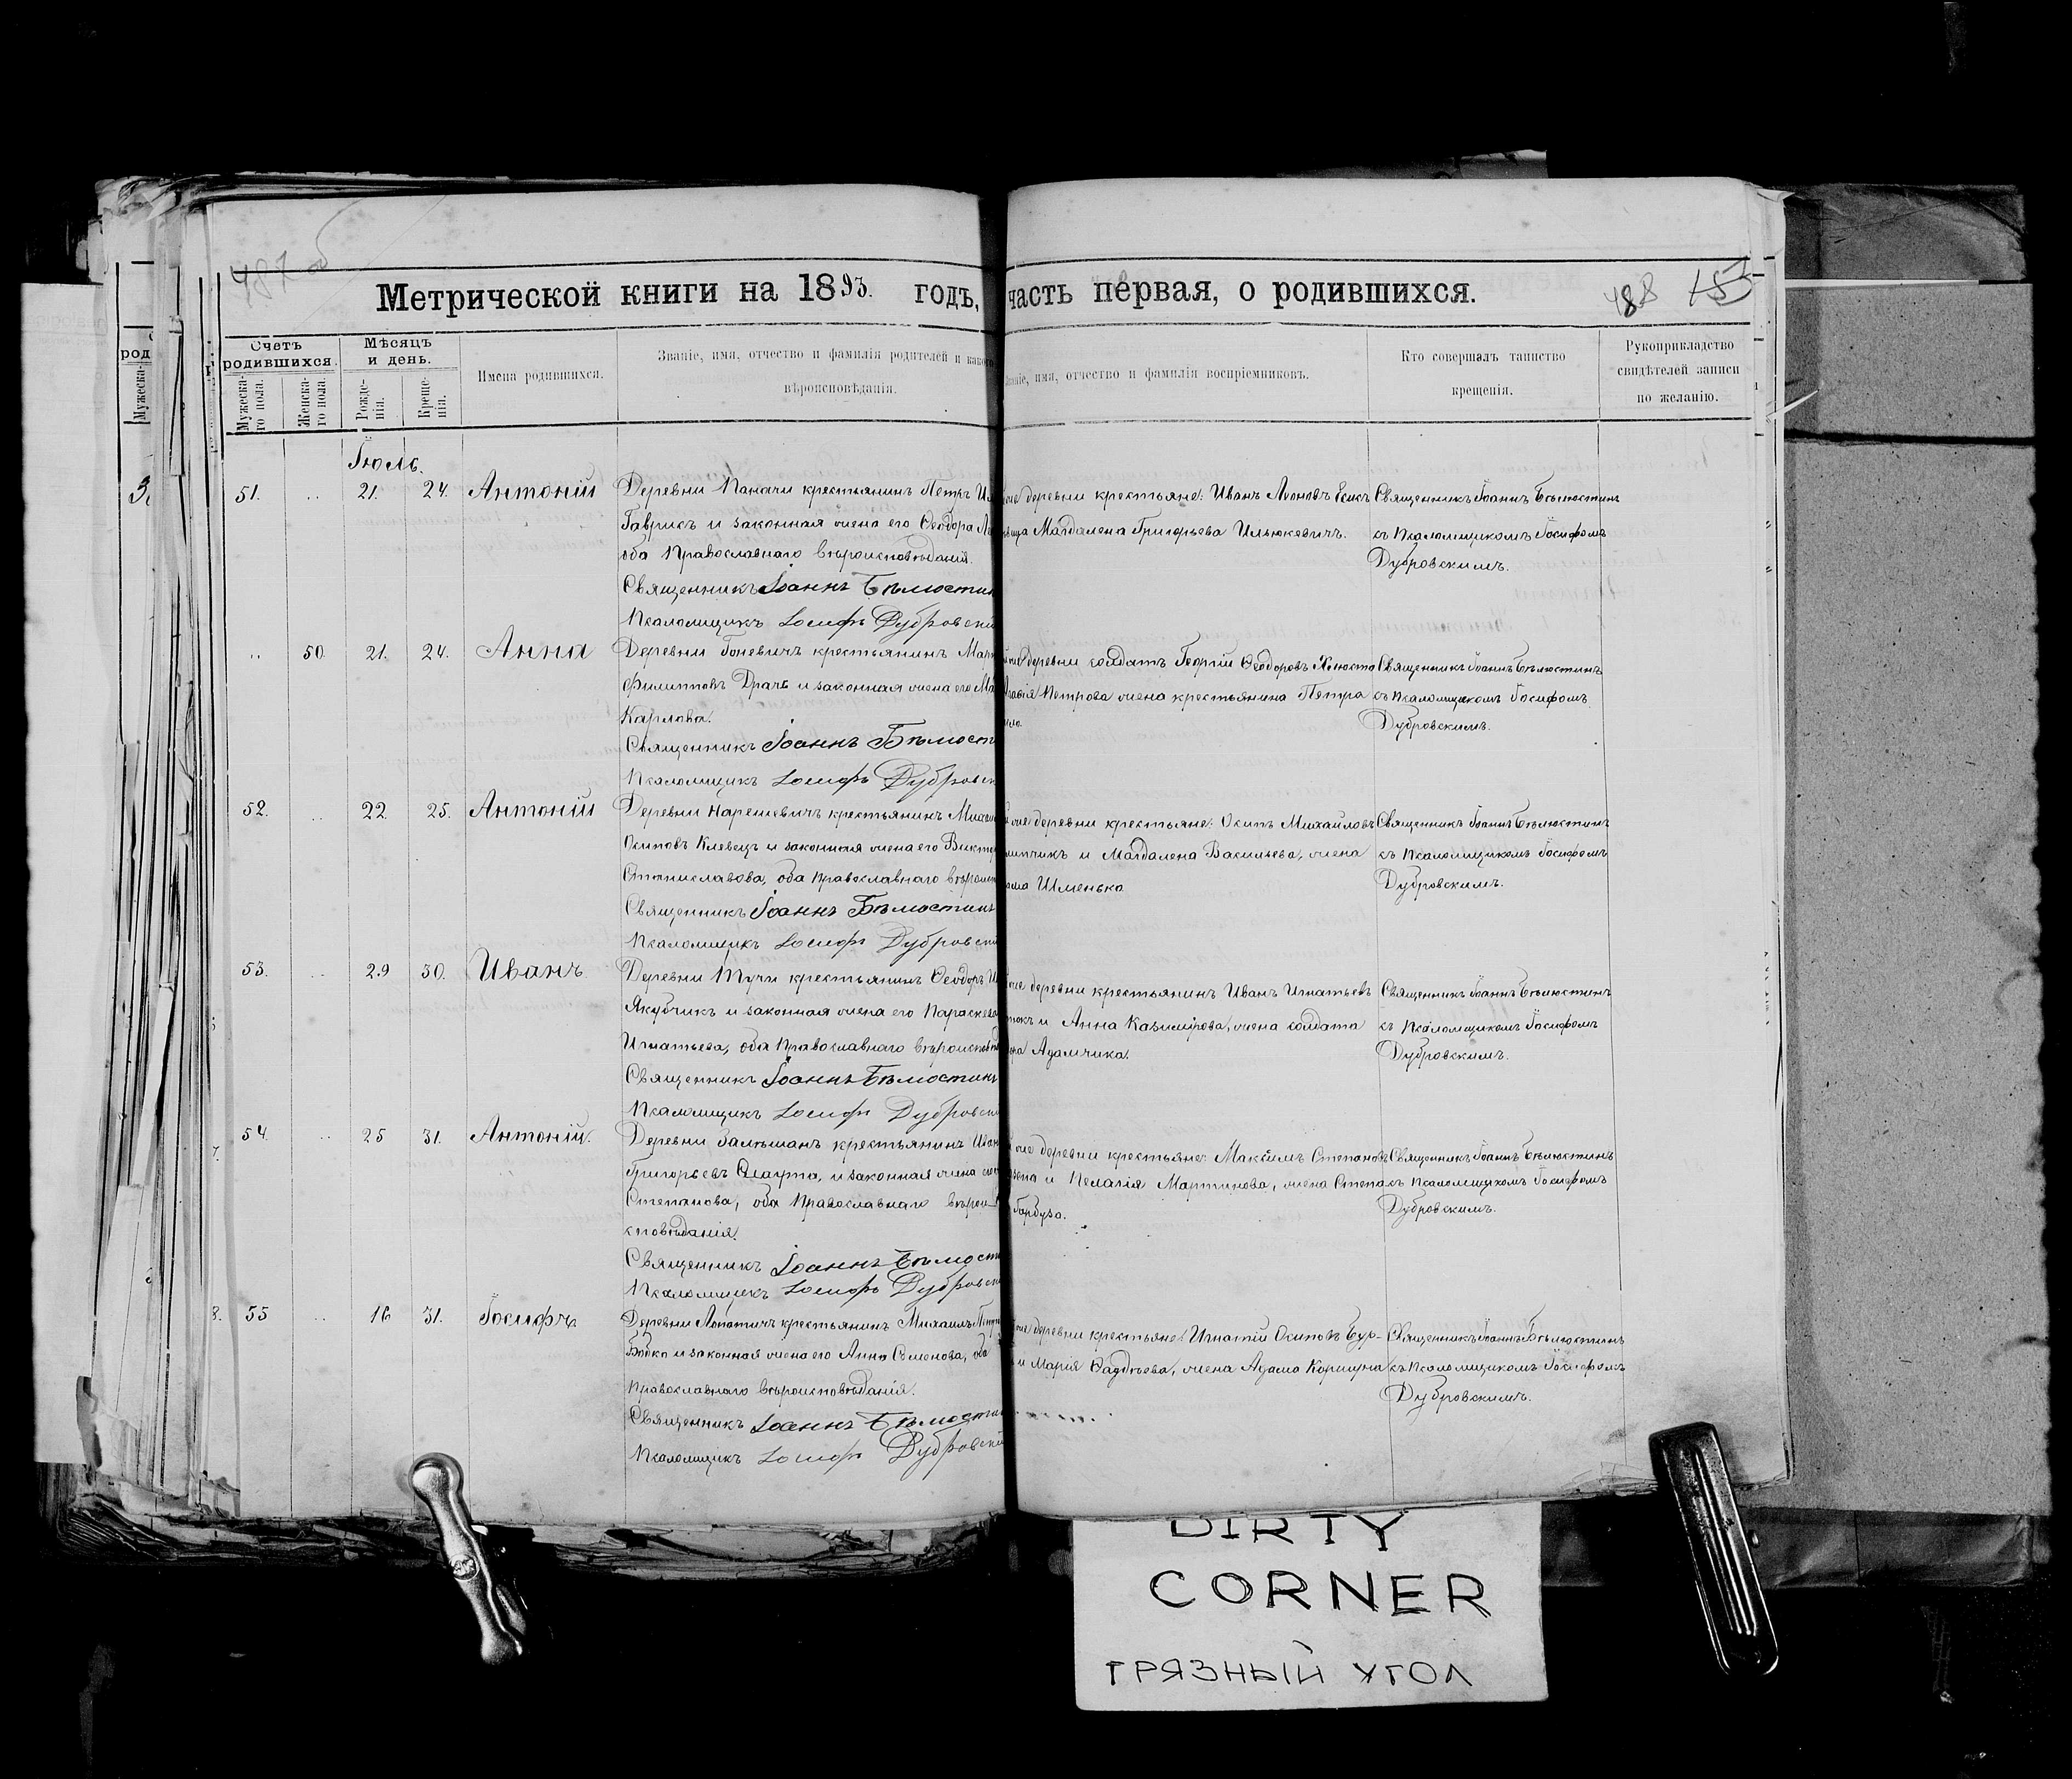 487 об
Метрической книги на 1893. годъ, часть первая, о родившихся.
488 155
Счетъ родившихся.
Мѣсяцъ и день.
Мужеска-го пола.
Женска-го пола.
Рожде-нія.
Креще-нія.
Имена родившихся.
Званіе, имя, отчество и фамилія родителей и какого
вѣроисповѣданія.
Званіе, имя, отчество и фамилія воспріемниковъ.
Кто совершалъ таинство
крещенія.
Рукоприкладство
свидѣтелей записи
по желанію.
Іюль.
51. .. 21. 24. Антоній
Деревни Паначи крестьянинъ Петръ
Гаврикъ и законная жена его Ѳеодора
оба Православнаго вѣроисповѣданія.
Священникъ Іоаннъ Бѣлюстин
Псаломщикъ Іосифъ Дубровскі
деревни крестьяне: Иванъ Леоновъ
Магдалена Григорьева Ильюкевичъ.
Священникъ Іоаннъ Бѣлюстинъ
съ Псаломщикомъ Іосифомъ
Дубровскимъ.
.. 50. 21. 24. Анна
Деревни Гоневичъ крестьянинъ
Филипповъ Драчъ и законная жена его
Карлова.
Священникъ Іоаннъ Бѣлюст
Псаломщикъ Іосифъ Дубровск
деревни солдатъ Георгій Ѳеодоровъ
Петрова жена крестьянина Петра
Священникъ Іоаннъ Бѣлюстинъ
съ Псаломщикомъ Іосифомъ
Дубровскимъ.
52. .. 22. 25. Антоній
Деревни Нарешевичъ крестьянинъ
Осиповъ Клевецъ и законная жена его Викто
Станиславова, оба Православнаго вѣроисп
Священникъ Іоаннъ Бѣлюстинъ
Псаломщикъ Іосифъ Дубровскі
деревни крестьяне: Осипъ Михайловъ
и Магдалена Васильева, жена
Шменько
Священникъ Іоаннъ Бѣлюстинъ
съ Псаломщикомъ Іосифомъ
Дубровскимъ.
53. .. 29 30. Иванъ
Деревни Тучи крестьянинъ Ѳеодоръ
Якубчикъ и законная жена его Параскева
Игнатьева, оба Православнаго вѣроисповѣд
Священникъ Іоаннъ Бѣлюстинъ
Псаломщикъ Іосифъ Дубровскі
деревни крестьянинъ Иванъ Игнатьевъ
и Анна Казимірова, жена солдата
Адамчика.
Священникъ Іоаннъ Бѣлюстинъ
съ Псаломщикомъ Іосифомъ
Дубровскимъ.
54. .. 25 31. Антоній.
Деревни Залѣшанъ крестьянинъ
Григорьевъ и законная жена его
Степанова, оба Православнаго вѣрои-
сповѣданія.
Священникъ Іоаннъ Бѣлюст
Псаломщикъ Іосифъ Дубровск
деревни крестьяне: Максимъ Степановъ
и Пелагія Мартинова, жена Степа
Гарбуза.
Священникъ Іоаннъ Бѣлюстинъ
съ Псаломщикомъ Іосифомъ
Дубровскимъ.
55 .. 16 31. Іосифъ
Деревни Лопатичъ крестьянинъ Михаилъ
Бобко и законная жена его Анна Семенова, оба
Православнаго вѣроисповѣданія.
Священникъ Іоаннъ Бѣлюстин
Псаломщикъ Іосифъ Дубровскі
деревни крестьяне: Игнатій Осиповъ Бур-
и Марія Ѳаддѣева, жена Адама Коршуна
Священникъ Іоаннъ Бѣлюстинъ
съ Псаломщикомъ Іосифомъ
Дубровскимъ.
DIRTY
CORNER
ГРЯЗНЫЙ УГОЛ